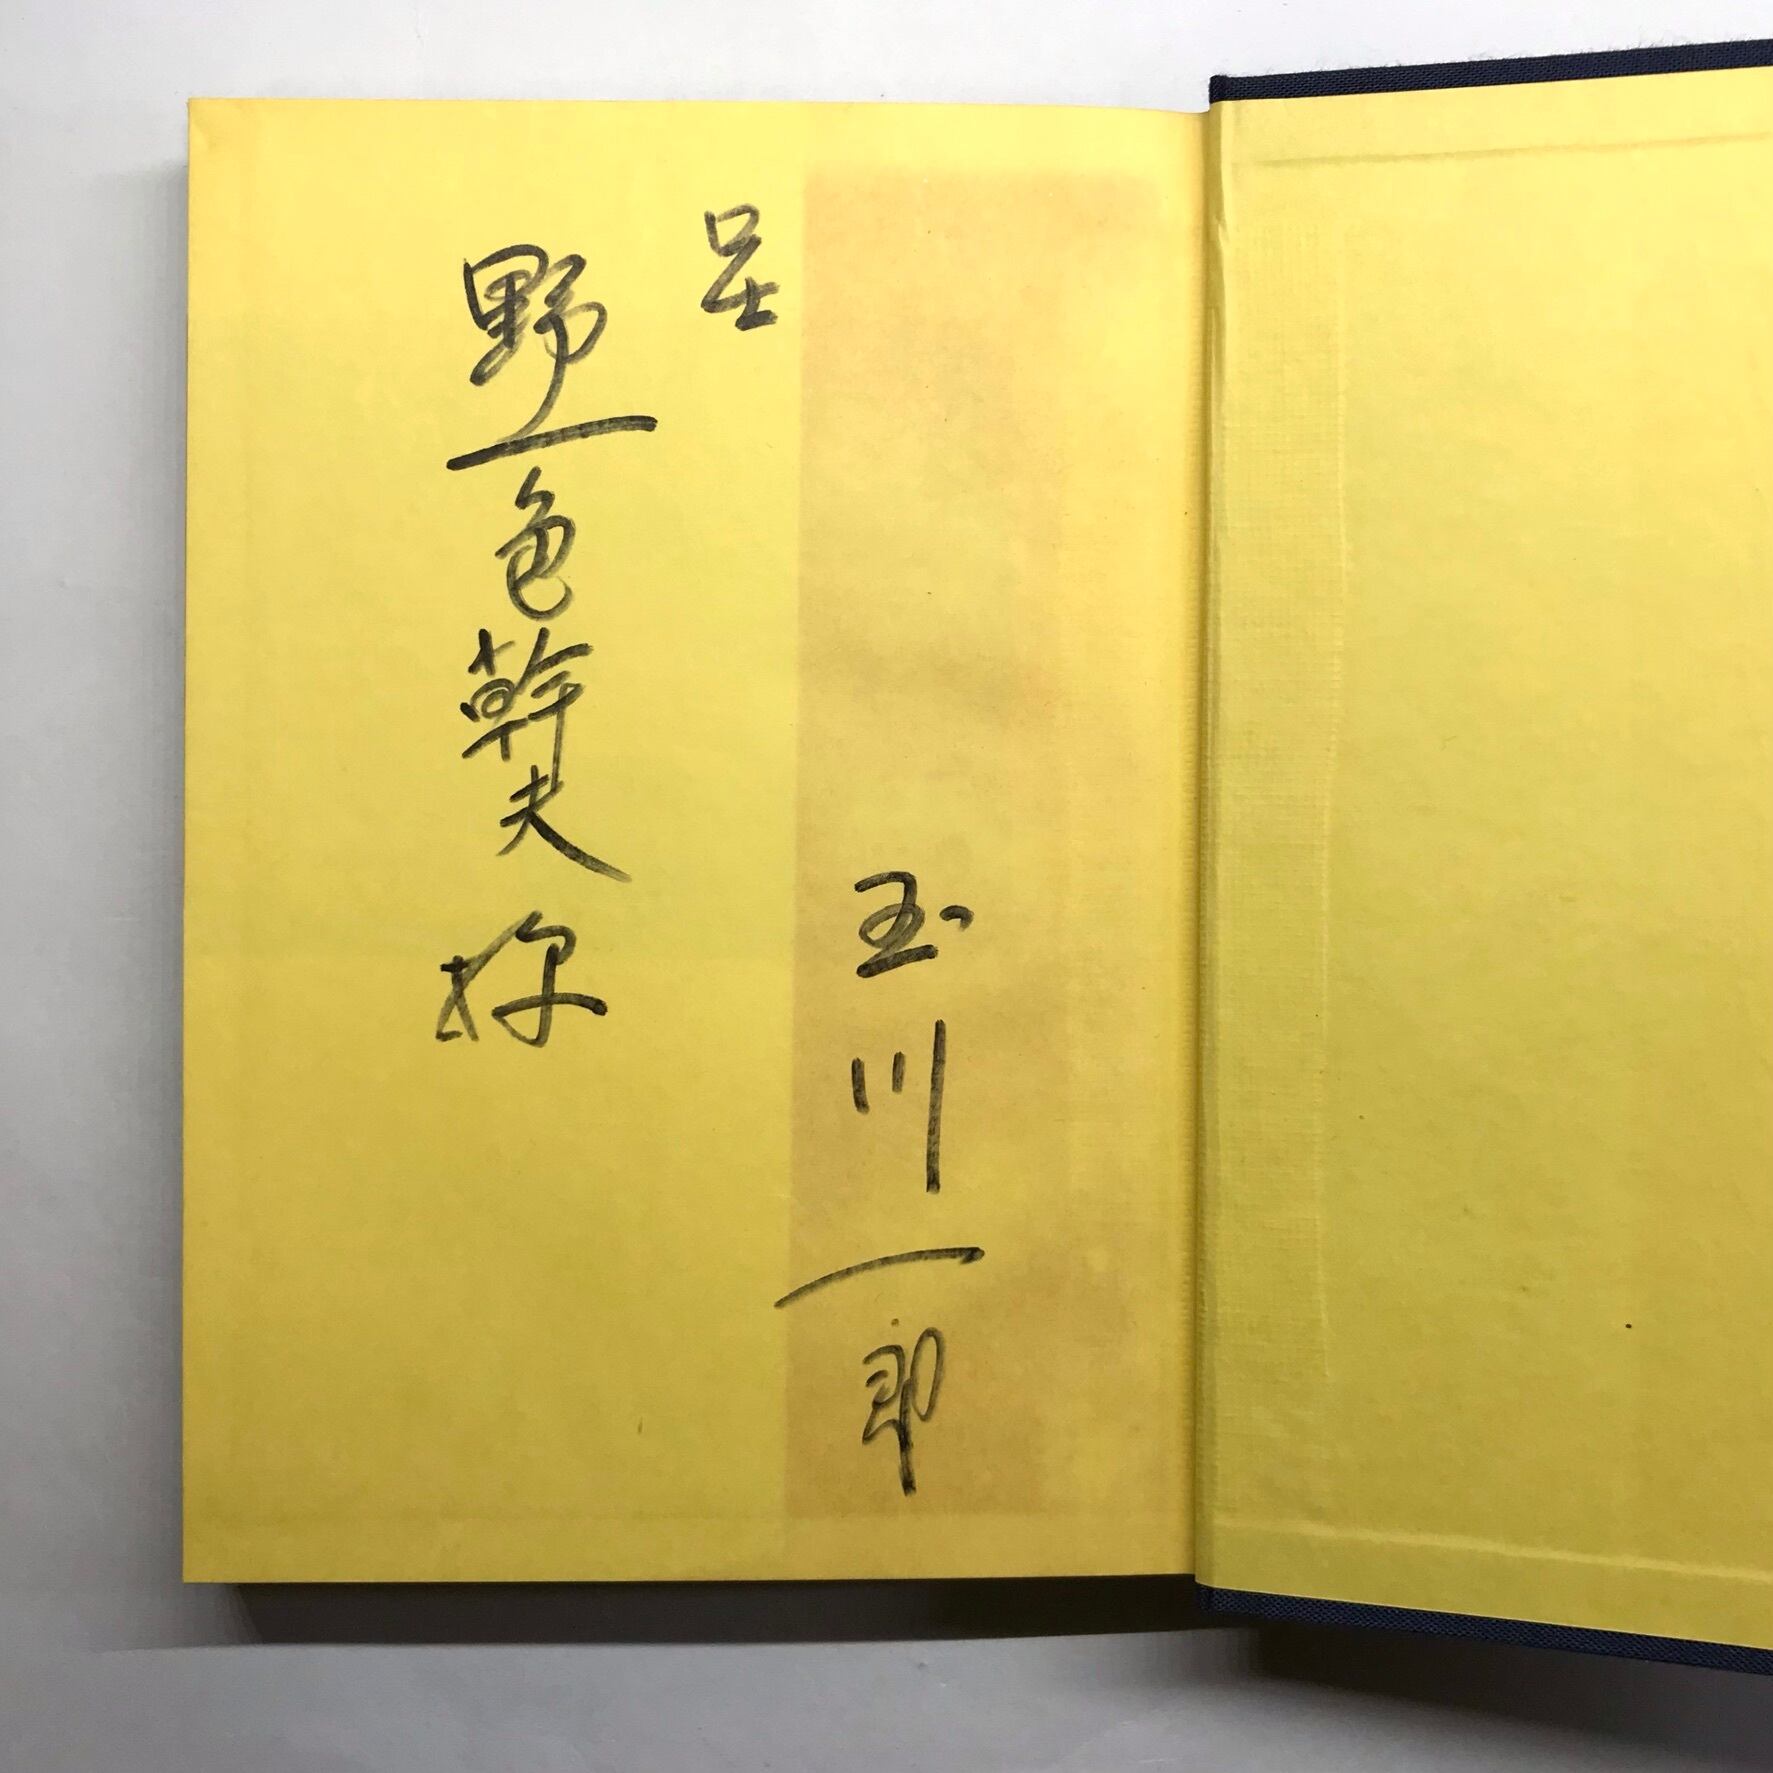 玉川一郎
呈
野一色幹夫様